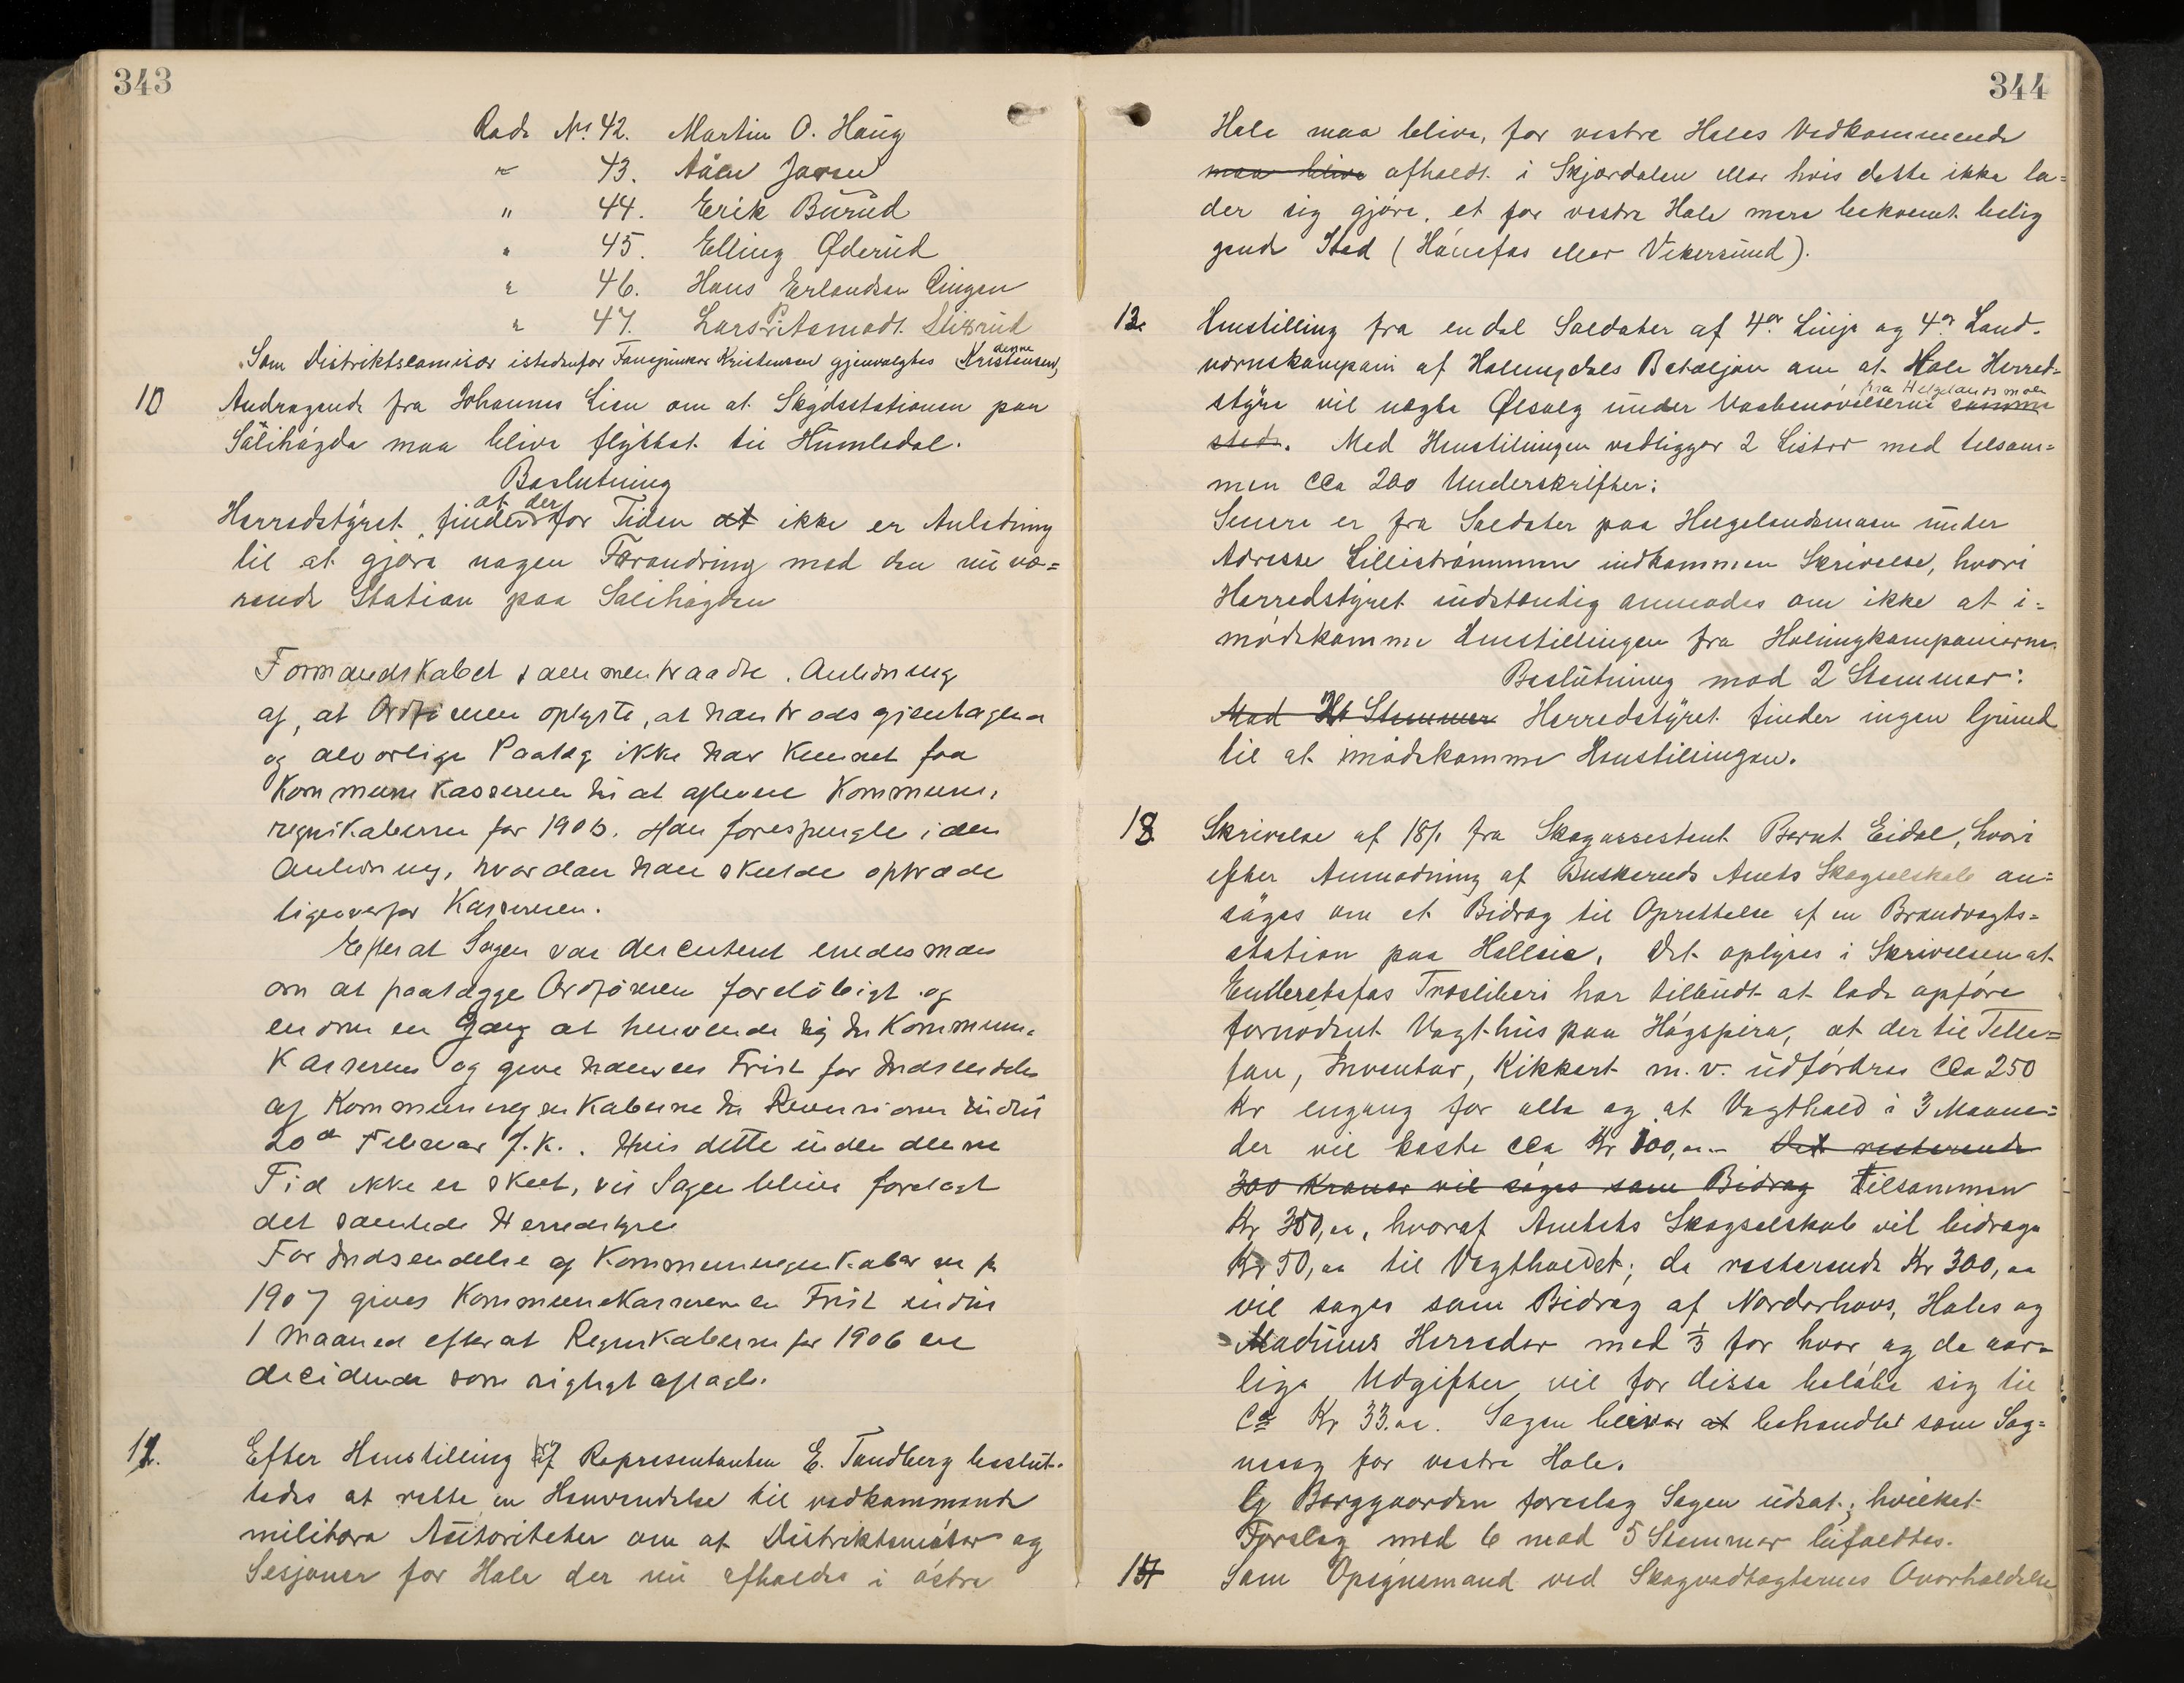 343
Rode No. 42. Martin O. Haug
" 43. Aaen Jaren
" 44. Erik Burud
" 45. Elling Øderud
" 46. Hans Erlandsen
" 47. Lars P. Asmodt
Som Distriktskomisær istedenfor Fansjunker Kristensen gjenvalgtes denne Kristensen,
10 Andragende fra Johannes Lien om at Skydsstationen paa
Sålihøgda maa blive flyttet til Humledal.
Beslutning
Herredstyret finder at der for Tiden at ikke er Anledning
til at gjøre nogen Forandring med den nu væ=
rende Station paa Solihøgden
Formandskabet sammentraadte. Anledning
af, at Ordføreren oplyste, at han trods gjentagende
og alvorlige Paalæg ikke har kunnet faa
Kommunekassereren til at aflevere Kommune-
regnskaberne for 1906. Han forespurgte i den
Anledning, hvordan han skulde optræde
ligeoverfor Kassereren.
Efterat Sagen var diskuteret enedes man
om at paalægge Ordføreren foreløbigt og
endnu en Gang at henvende sig til Kommune-
Kassereren og give ham en Frist for Indsendelse
af Kommuneregnskaberne til Revisionen inden
20de Februar f.K.. Hvis dette inden denne
Tid ikke er skeet, vil Sagen blive forelagt
det samlede Herredstyre
For Indsendelse af Kommuneregnskaberne for
1907 gives Kommunekassereren en Frist inden
1 Maaned efterat Regnskaberne for 1906 er
deciderede som rigtigt aflagte.
11. Efter Henstilling af Representanten E. Tandberg beslut-
tedes at rette en Henvendelse til vedkommende
militære Autoriteter om at Distriktsmøter og
Sesjoner for Hole der nu afholdes i østre
344
Hole maa blive, for vestre Holes Vedkommende
maa blive afholdt i Skjørdalen eller hvis dette ikke la=
der sig gjøre, et for vestre Hole mere bekvemt belig
gende Sted (Hønefos eller Vikersund).
12. Henstilling fra endel Soldater af 4de Linje og 4de Land-
værnskompani af Hallingdals Bataljon om at Hole Herred=
styre vil nægte Ølsalg under Vaabenøvelserne paa Helgelandsmoen samme
sted. Med Henstillingen vedligger 2 Lister med tilsam=
men cca 200 Underskrifter:
Senere er fra Soldater paa Helgelandsmoen under
Adresse Lillestrømmen indkommen Skrivelse, hvori
Herredstyret indstændig anmodes om ikke at i=
mødekomme Henstillingen fra Hallingkompanierne.
Beslutning mod 2 Stemmer:
Mod Stemmer Herredstyret finder ingen Grund
til at imødekomme Henstillingen.
13 Skrivelse af 18/1 fra Skogassestent Bernt Eidal, hvori
efter Anmodning af Buskeruds Amts Skogselskab an=
søges om et Bidrag til Oprettelse af en Brandvagts=
station paa Holleia. Det oplyses i Skrivelsen at
Embretsfos Træsliberi har tilbudt at lade opføre
fornødent Vagthus paa Høgspira, at der til Tele=
fon, Inventar, Kikkert m.v. udfordres Cca 250
Kr engang for alle og at Vagthold i 3 Maane=
der vil koste cca Kr 100,00. Det resterende
300 Kroner vil søges som Bidrag Tilsammen
Kr 350,00, hvoraf Amtets Skogselskab vil bidrage
Kr 50,00 til Vagtholdet; de resterende Kr 300,00
vil søges som Bidrag af Norderhovs, Holes og
Modums Herreder med 1/3 for hver og de aar=
lige Udgifter vil for disse beløbe sig til
Ca Kr 33.00. Sagen bliver at behandlet som Sog=
nesag for vestre Hole.
G Borggaarden foreslog Sagen udsat; hvilket
Forslag med 6 mod 5 Stemmer bifaldtes.
14 Som Opsynsmand ved Skogvedtægternes Overholdelse